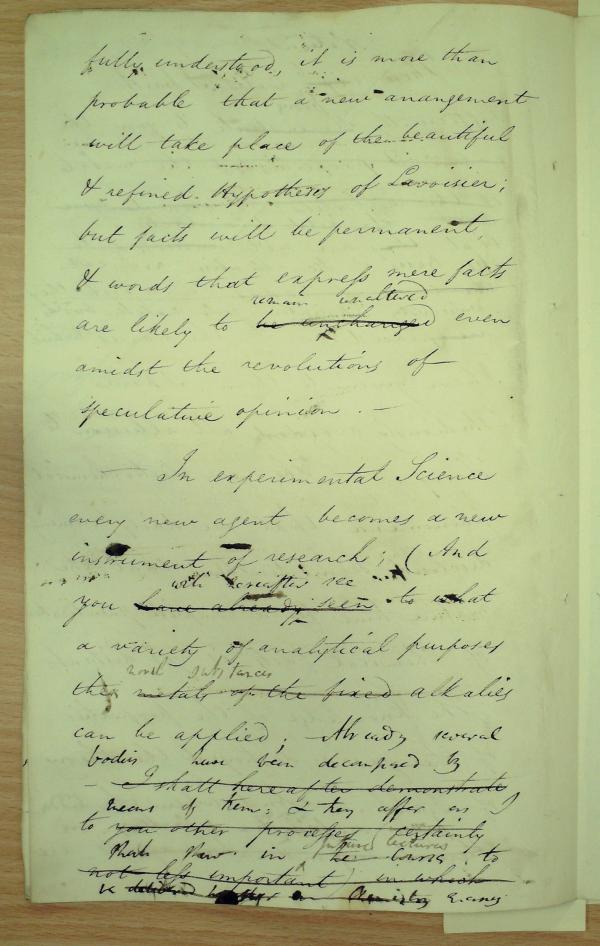 fully understood, it is more than
probable that a new arrangement
will take place of the beautiful
& refined Hypothesis of Lavoisier;
but facts will be permanent,
& words that express mere facts
remain unaltered
are likely to be unchanged even
amidst the revolutions of
speculative opinion. —
— In experimental Science
every new agent becomes a new
instrument of research; (And
will hereafter see
you have already seen to what
a variety of analytical purposes
novel substances
the metals of the fixed alkalies
can be applied; Already several
bodies have been decomposed by
— I shall hereafter demonstrate
means of them; & they offer us
to you other processes certainly
future lectures
in the to
not less important) in which
be delivered